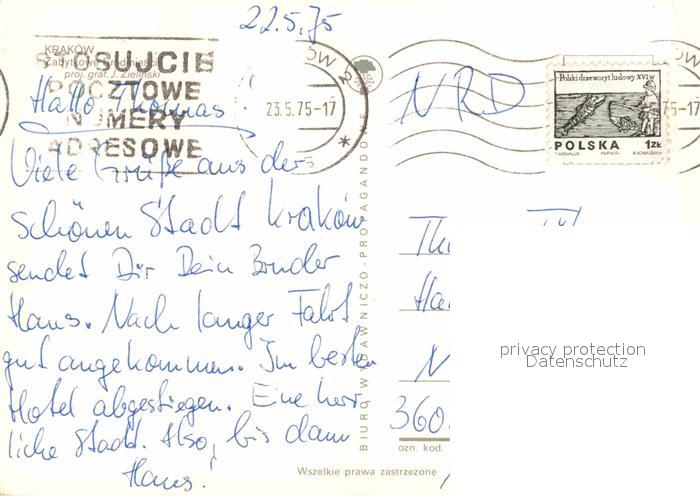 22.5.75
KRAKÓW
Zabytkowe śródmieście
proj. graf. J. Zieliński
STOSUJCIE
POCZTOWE
NUMERY
ADRESOWE
23.5.75-17
Hallo Thomas!
Viele Grüße aus der
schönen Stadt Kraków
sendet Dir Dein Bruder
Hans. Nach langer Fahrt
gut angekommen. Im besten
Hotel abgestiegen. Eine herr
liche Stadt. Also, bis dann
Hans!
BIURO WYDAWNICZO-PROPAGANDOWE
NRD
75-17
Polski drzeworyt ludowy XVI w.
POLSKA 1 ZŁ
Th
Ha
N
360
ozn. kod.
Wszelkie prawa zastrzeżone
privacy protection
Datenschutz